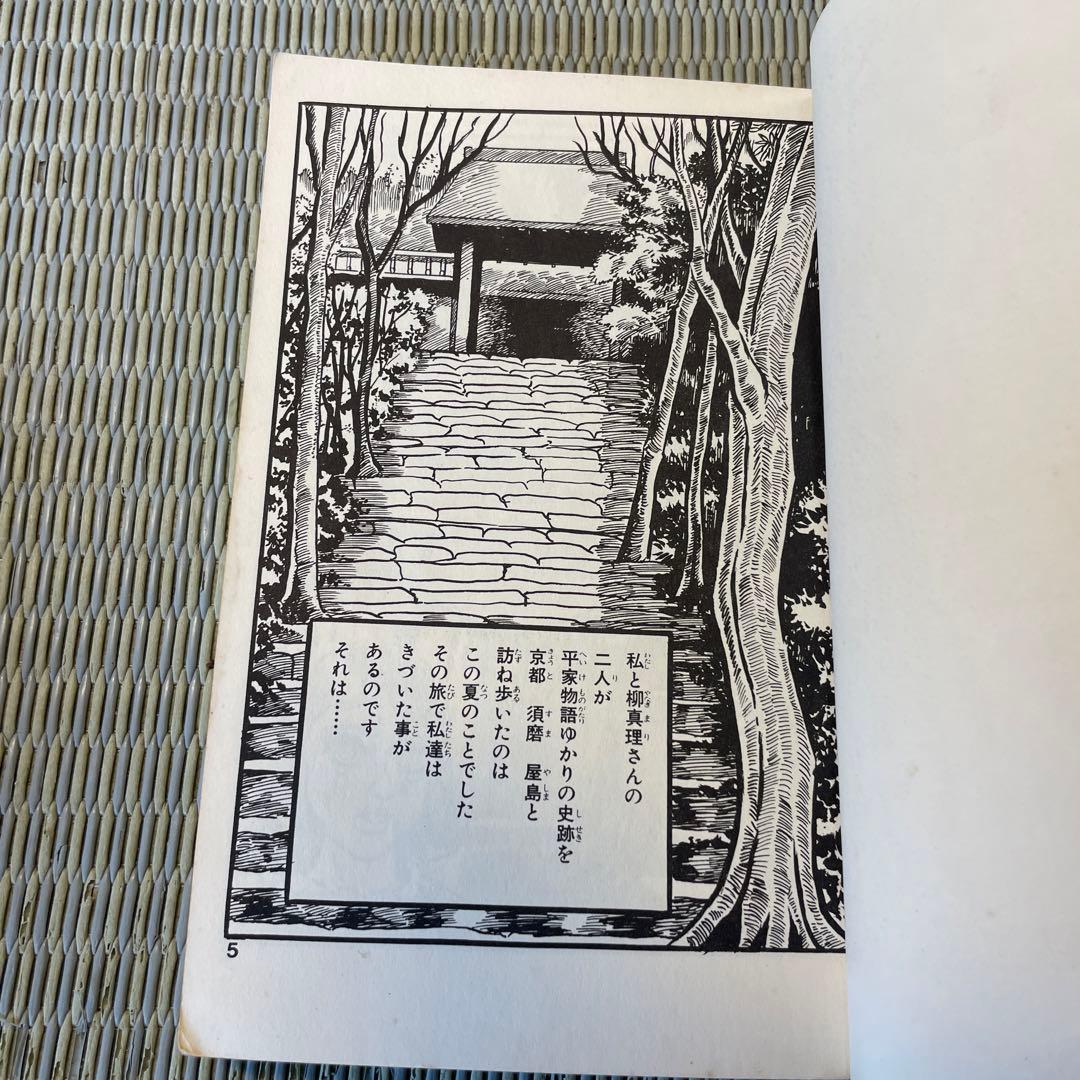 私と柳真理さんの
二人が
平家物語ゆかりの史跡を
京都　須磨　屋島と
訪ね歩いたのは
この夏のことでした
その旅で私達は
きづいた事が
あるのです
それは……
5